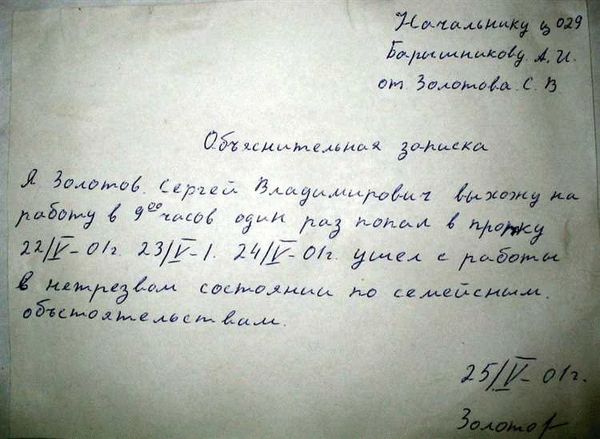 Начальнику ц 029
Барышникову. А. И.
от Золотова. С. В
Объяснительная записка
Я Золотов. Сергей Владимирович выхожу на
работу в 9⁰⁰ часов один раз попал в
22/V-01г. 23/V-1. 24/V-01г. ушел с работы
в нетрезвом состоянии по семейсным.
объстоятельствам.
25/V-01г.
Золотов